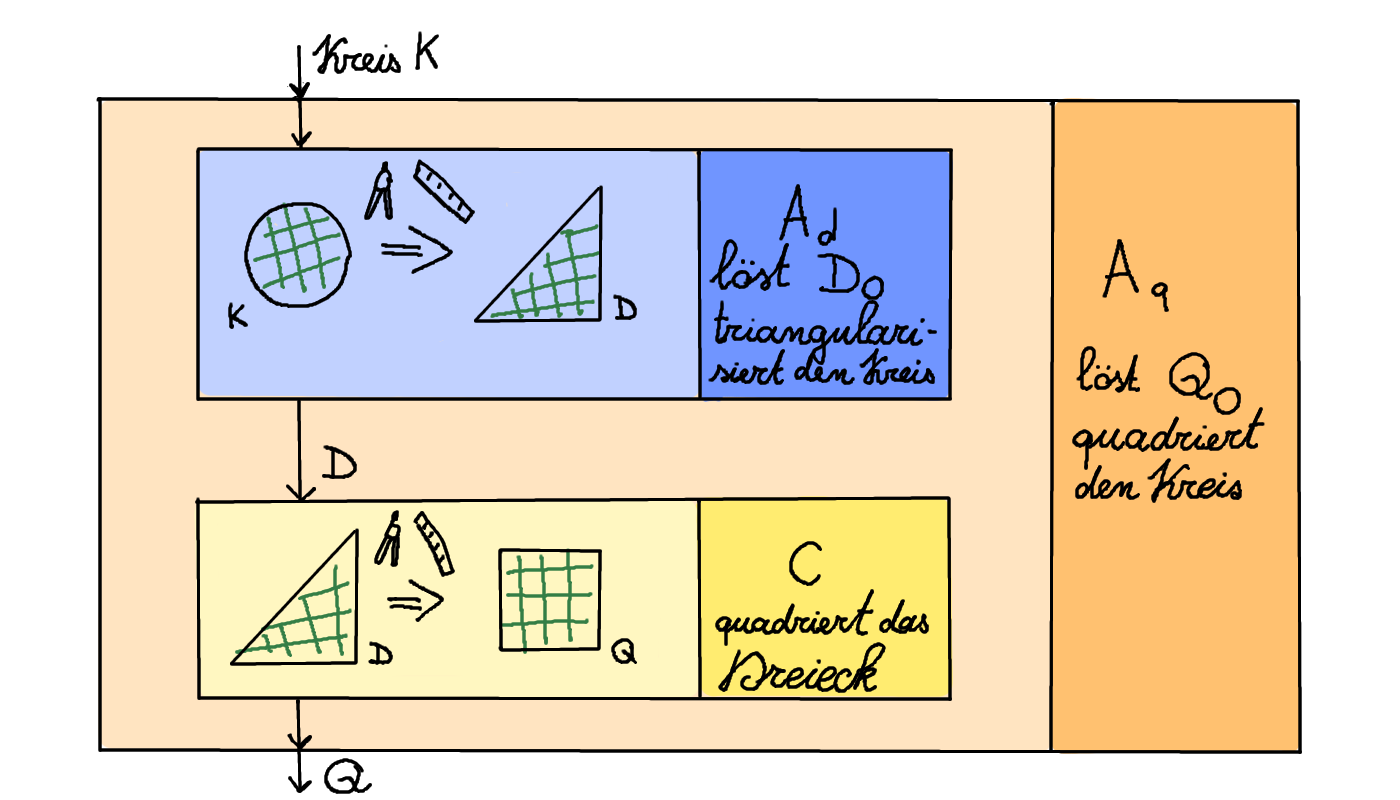 Kreis K
K
D
A d
löst D O
triangulari-
siert den Kreis
D
D
Q
C
quadriert das
Dreieck
A q
löst Q O
quadriert
den Kreis
Q